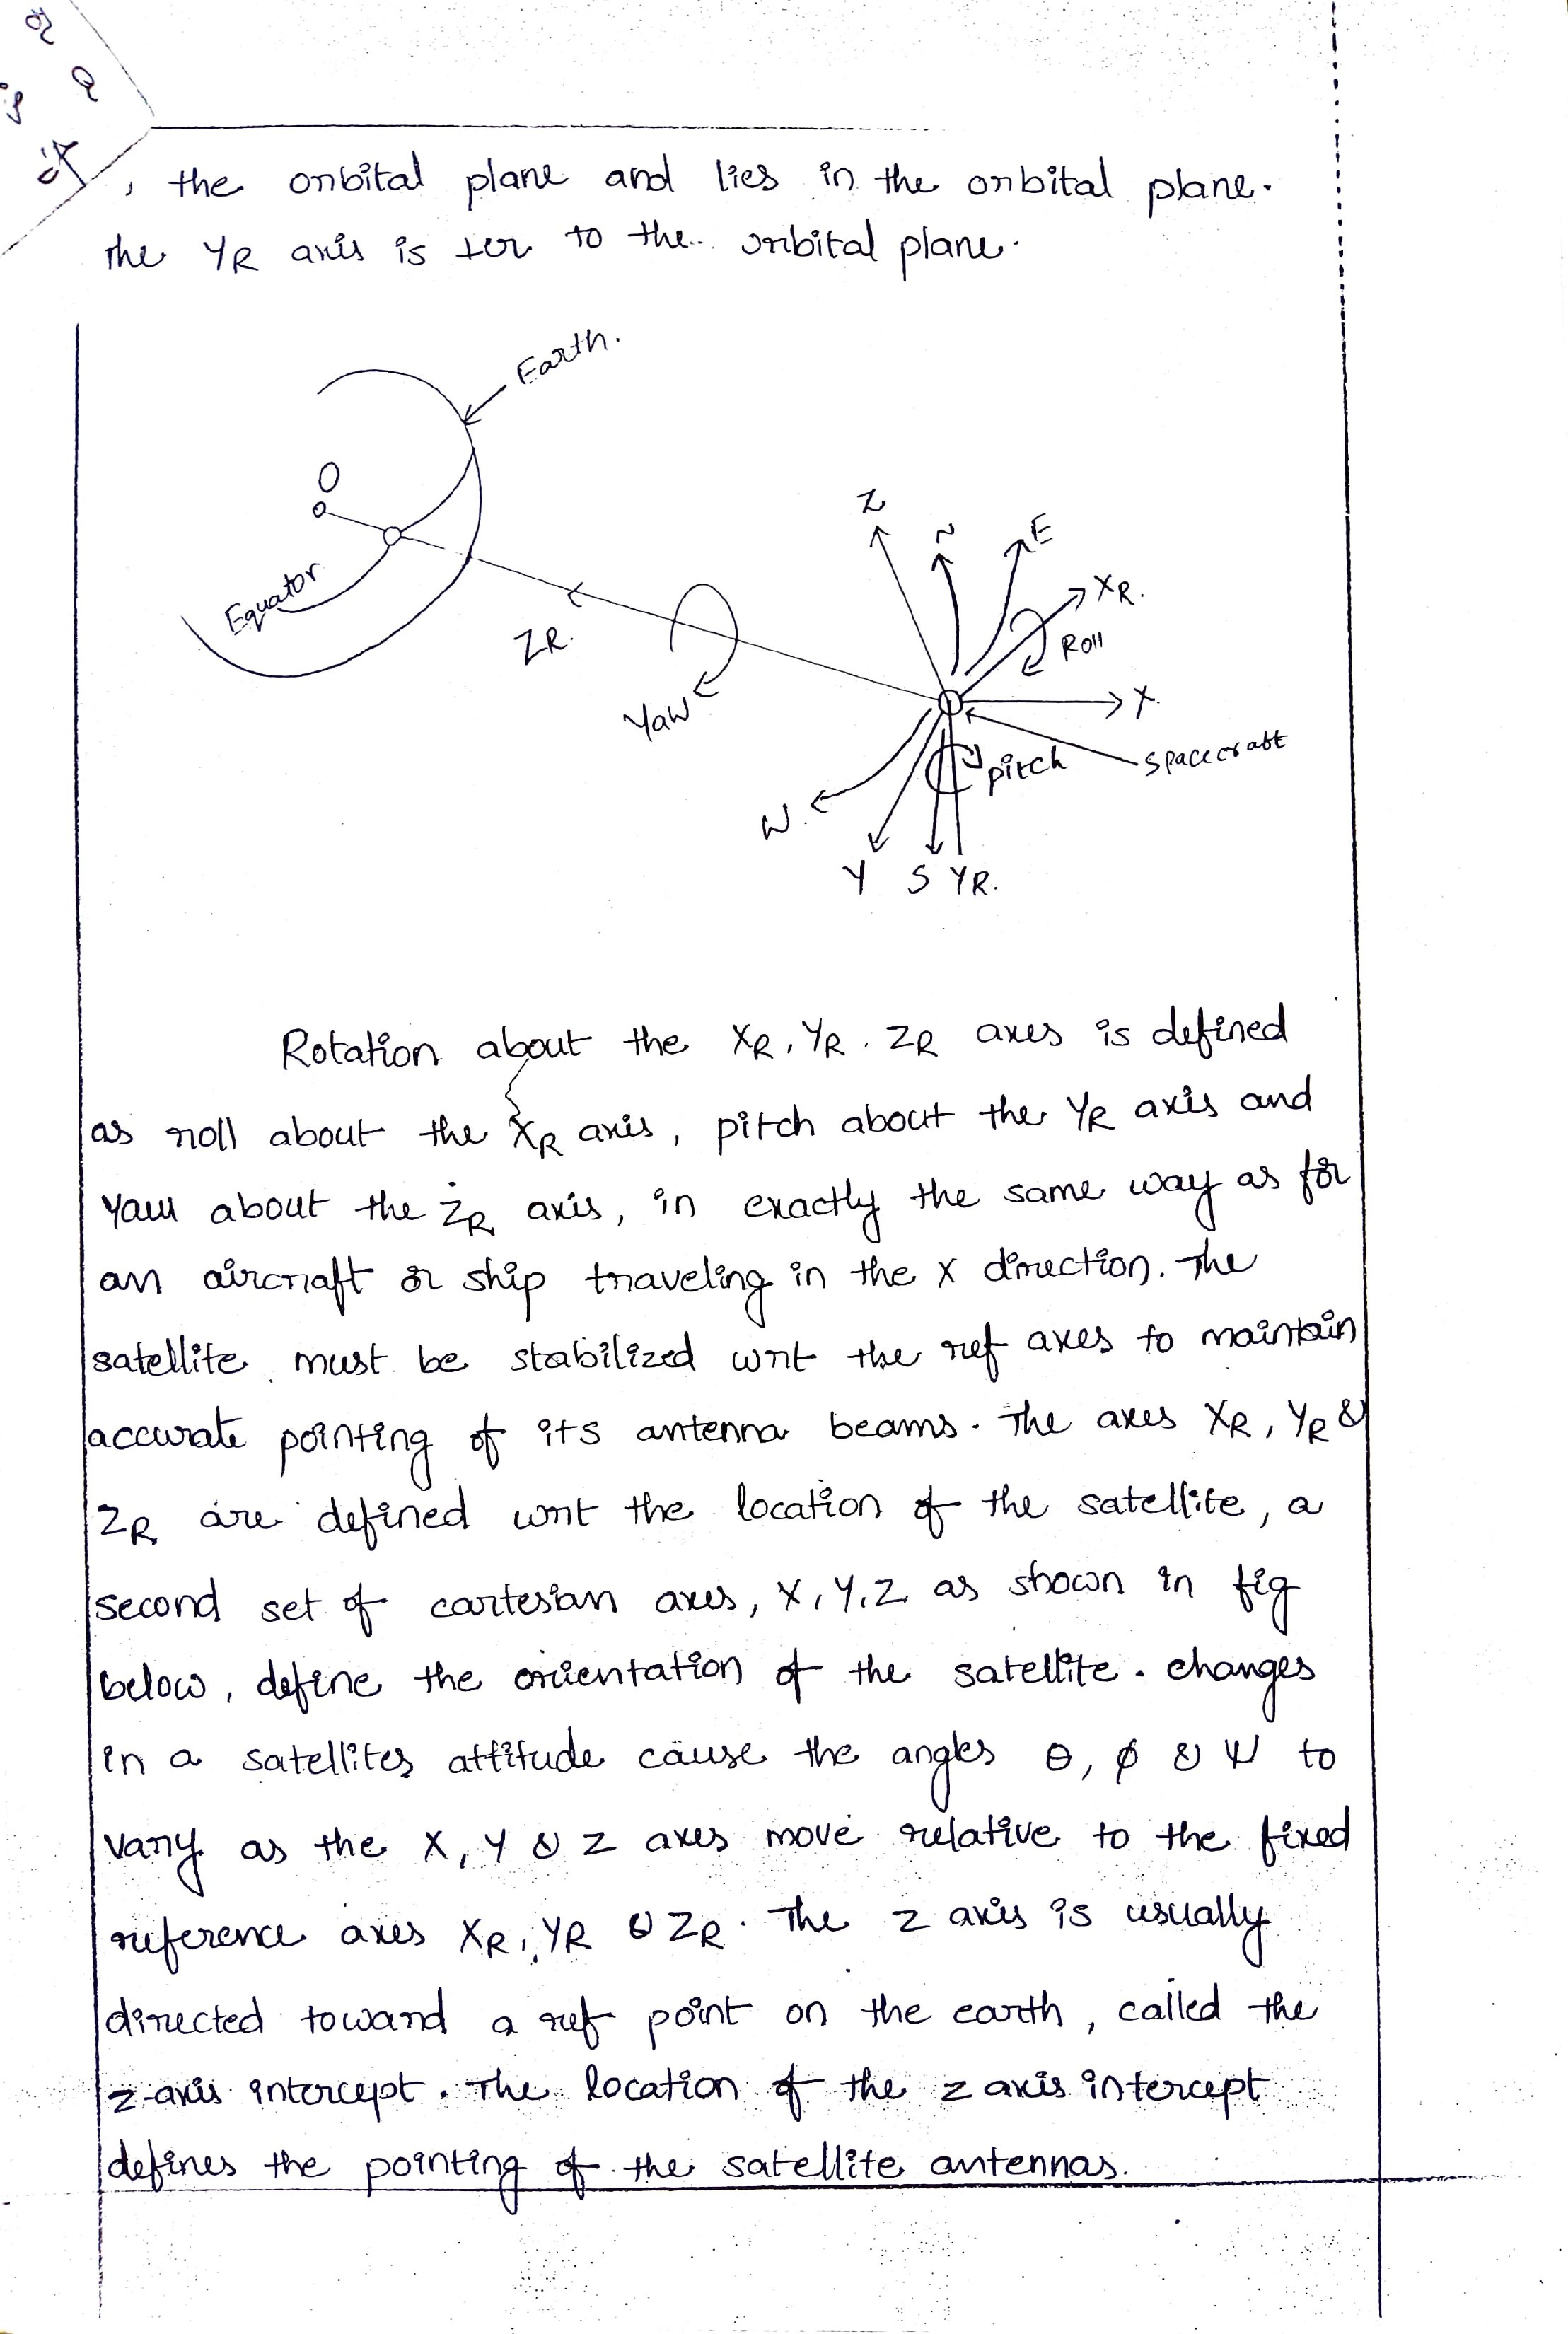 , the orbital plane and lies in the orbital plane.
The YR axis is ter to the orbital plane.
Earth.
O
Equator
ZR.
Yaw
Z
N
E
XR.
Roll
X.
spacecraft
pitch
W.
Y S YR.
Rotation about the XR, YR, ZR axes is defined
as roll about the XR axis, pitch about the YR axis and
yaw about the ZR axis, in exactly the same way as for
an aircraft or ship traveling in the x direction. The
satellite must be stabilized wrt the ref axes to maintain
accurate pointing of its antenna beams. The axes XR, YR &
ZR are defined wrt the location of the satellite, a
second set of cartesian axes, X, Y, Z as shown in fig
below, define the orientation of the satellite. changes
in a satellites attitude cause the angles θ, ϕ & ψ to
vary as the X, Y & Z axes move relative to the fixed
reference axes XR, YR & ZR. The z axis is usually
directed toward a ref point on the earth, called the
z-axis intercept. The location of the z axis intercept
defines the pointing of the satellite antennas.